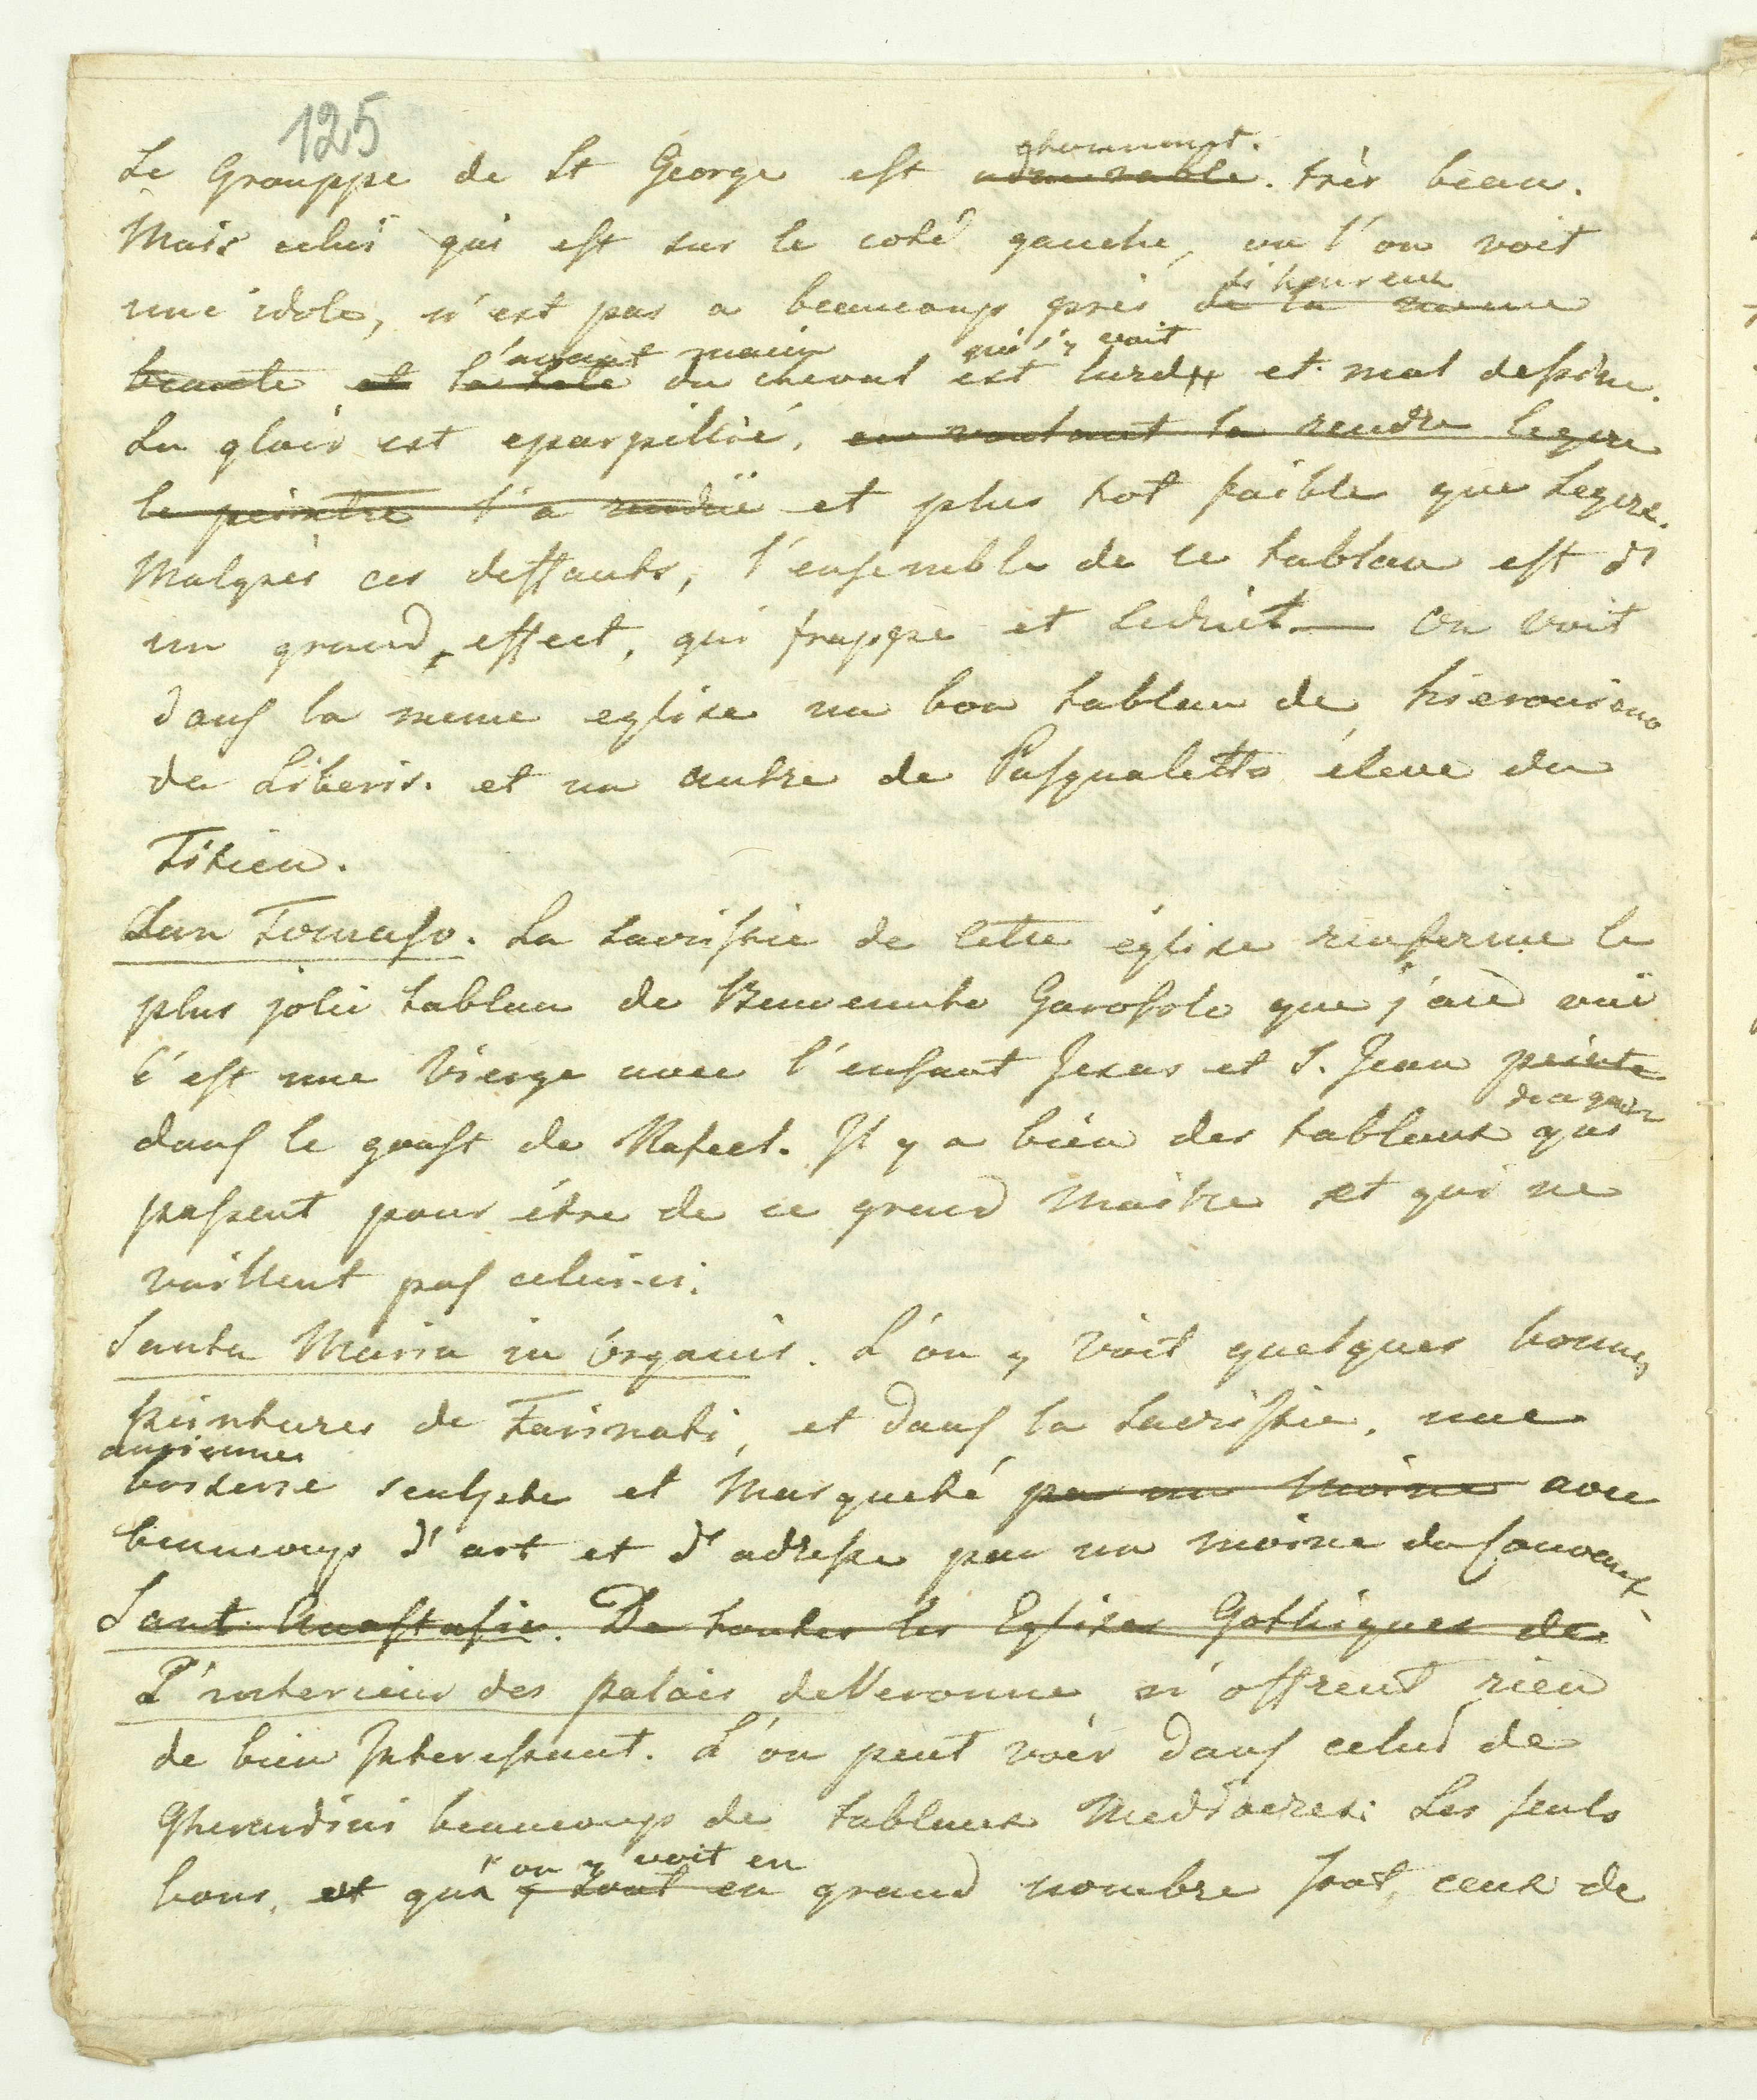 125
Le Grouppe de St George est admirable. très beau.
Mais celui qui est sur le coté gauche, ou l'on voit
si heureux
une idole, n'est pas a beaucoup près de la meme
l'avant main qui s'y voit
beauté et la tete du cheval est lurd et mal dessine.
La gloir est eparpillié, en voulant la rendre legere
le peintre l'a rendüe et plus tot faible que Legere.
Malgrés ces deffauts, l'ensemble de ce tableau est d'
un grand effect, qui frappe et seduit — On voit
dans la meme eglise un bon tableau de hieronimo
de Liberis. et un autre de Pasqualetto éleve du
Titien.
San Tomaso. La sacristie de cette église renferme le
plus jolie tableau de Benvenuto Garofolo que j'aie vuë
C'est une Vierge avec l'enfant Jesus et S. Jean peinte
dans le goust de Rafael. Il y a bien des tableaux qui
passent pour étre de ce grand Maitre et qui ne
vaillent pas celui-ci.
Santa Maria in Organis. L'on y voit quelques bonnes
peintures de Farinati, et dans la sacristie, une
ancienne
boiserie sculpte et Marqueté par un Moine avec
beaucoup d'art et d'adresse par un moine du Couvent
Sant Anastasie. De toutes les Eglises Gothiques de
L'interieur des palais de Veronne n'offrent rien
de bien Interessant. L'on peut voir dans celui de
Gherardini beaucoup de tableaux Mediocres: Les seuls
l'on y voit en
bons, et qui y sont en grand nombre sont, ceux de